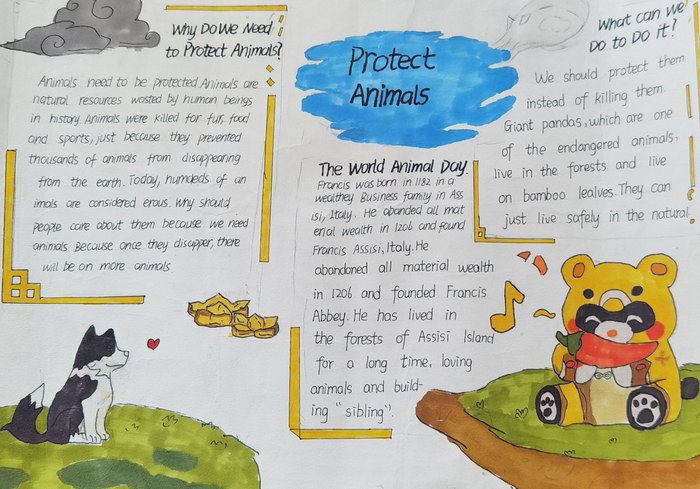 Why Do We Need
to Protect Animals?
Animals need to be protected Animals are
natural resources wasted by human beings
in history. Animals were killed for fur, food
and sports, just because they prevented
thousands of animals from disappearing
from the earth. Today, humdeds of an
imals are considered erous. Why should
people care about them because we need
animals Because once they disapper, there
will be on more animals
Protect
Animals
The World Animal Day.
Francis was born in 1182 in a
wealthey Business family in Ass
isi, Italy. He abanded all mat
erial wealth in 1206 and found
Francis Assisi, Italy. He
abandoned all material wealth
in 1206 and founded Francis
Abbey. He has lived in
the forests of Assisi Island
for a long time, loving
animals and build-
ing "sibling".
What can we
Do to Do it?
We should protect them
instead of killing them.
Giant pandas, which are one
of the endangered animals,
live in the forests and live
on bamboo lealves. They can
just live safely in the natural.